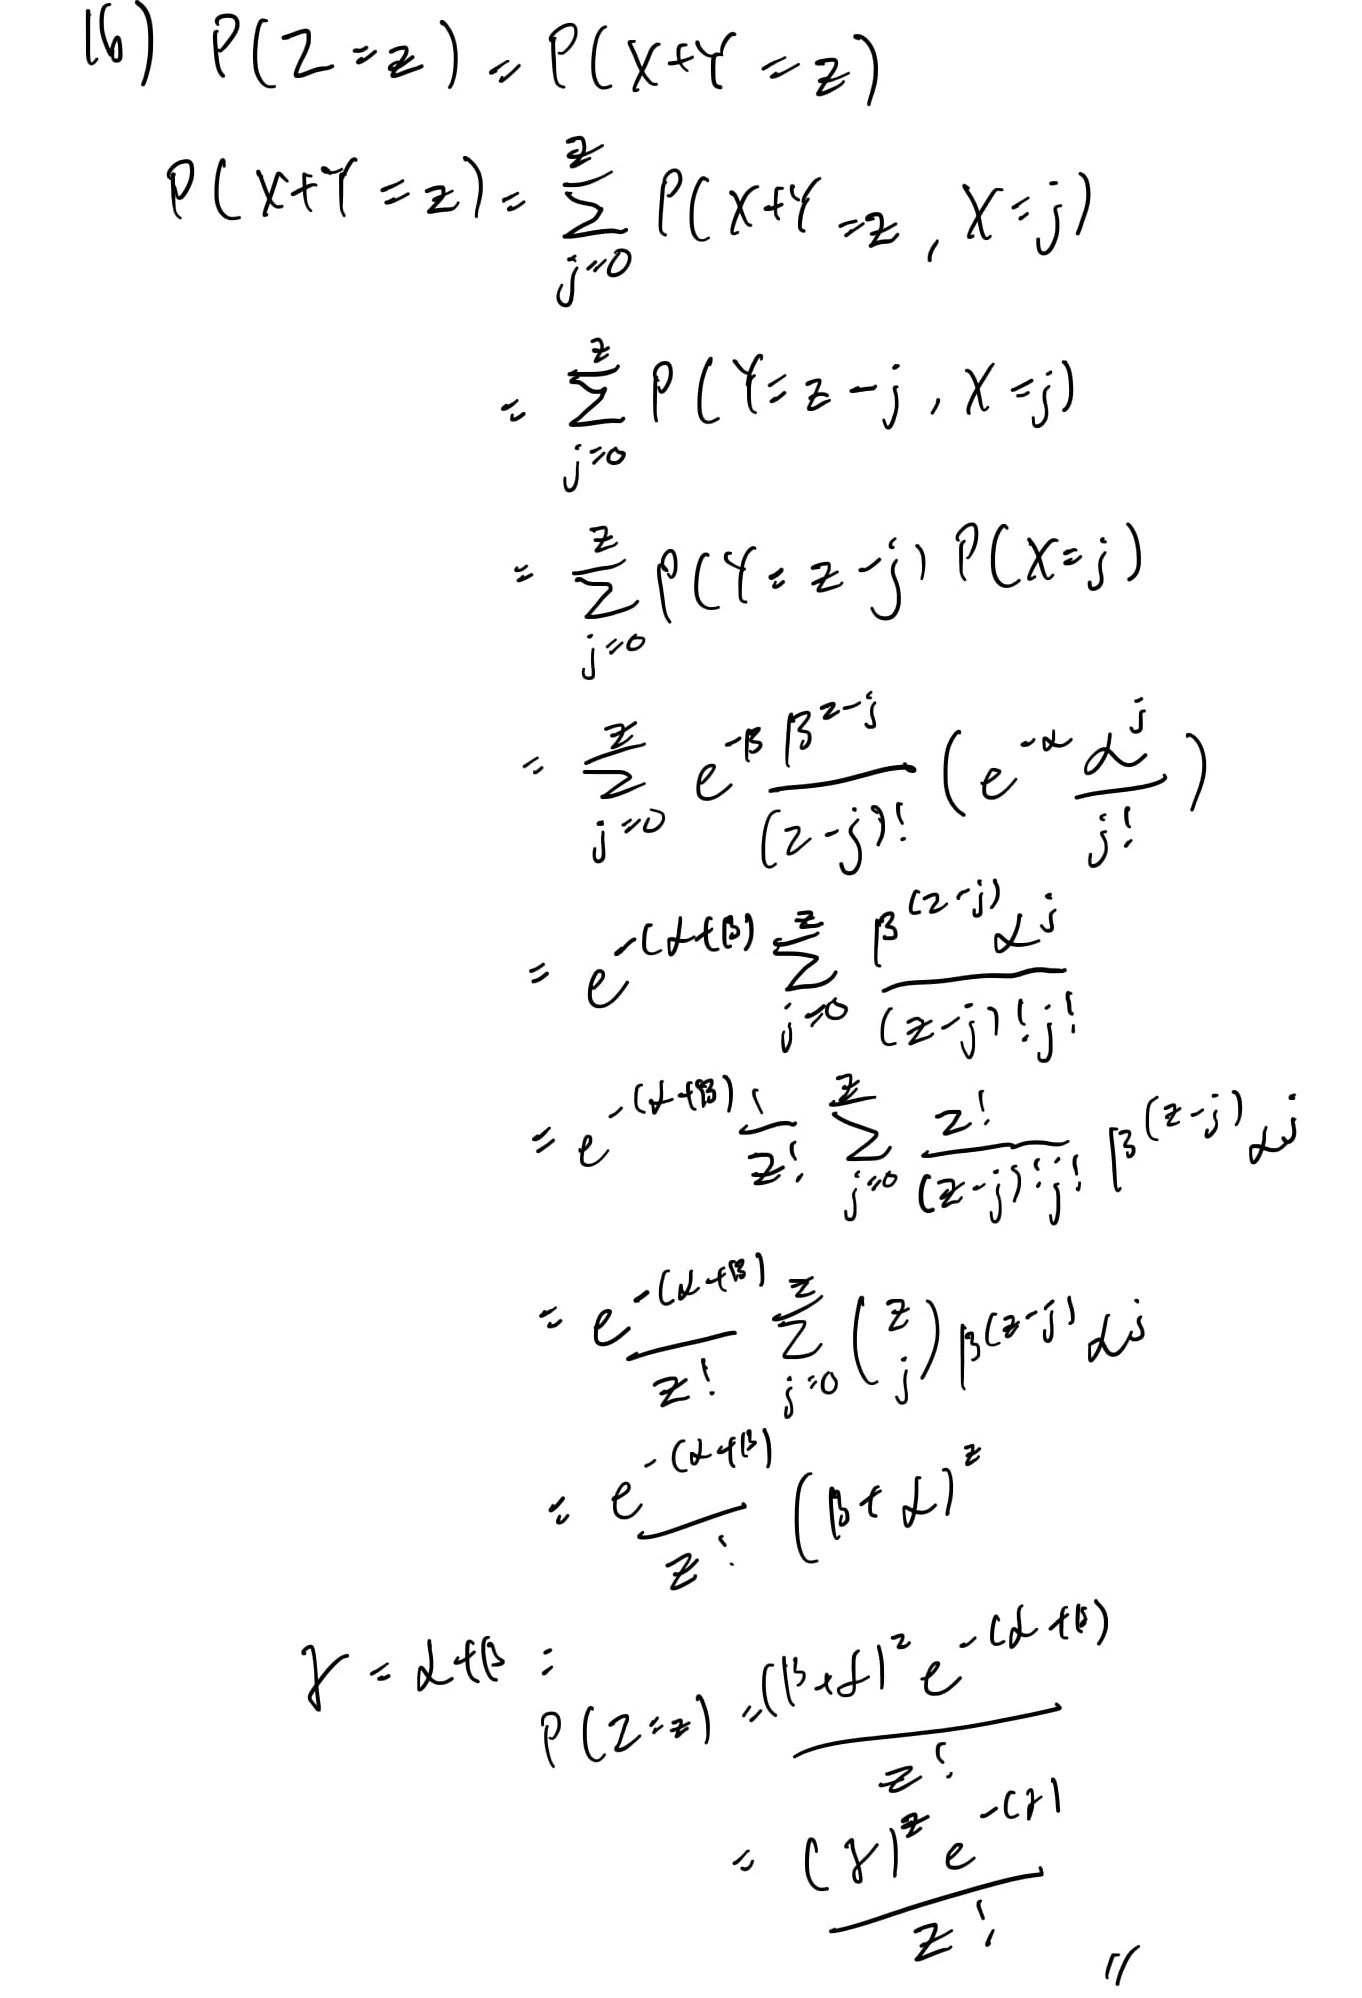 16) P(Z=z) = P(X+Y=z)
P(X+Y=z) = \sum_{j=0}^{z} P(X+Y=z, X=j)
= \sum_{j=0}^{z} P(Y=z-j, X=j)
= \sum_{j=0}^{z} P(Y=z-j) P(X=j)
= \sum_{j=0}^{z} e^{-β} \frac{β^{z-j}}{(z-j)!} (e^{-α} \frac{α^{j}}{j!})
= e^{-(α+β)} \sum_{j=0}^{z} \frac{β^{(z-j)} α^{j}}{(z-j)! j!}
= e^{-(α+β)} \frac{1}{z!} \sum_{j=0}^{z} \frac{z!}{(z-j)! j!} β^{(z-j)} α^{j}
= \frac{e^{-(α+β)}}{z!} \sum_{j=0}^{z} \binom{z}{j} β^{(z-j)} α^{j}
= \frac{e^{-(α+β)}}{z!} (β+α)^{z}
γ = α+β :
P(Z=z) = \frac{(β+α)^{z} e^{-(α+β)}}{z!}
= \frac{(γ)^{z} e^{-(γ)}}{z!} //